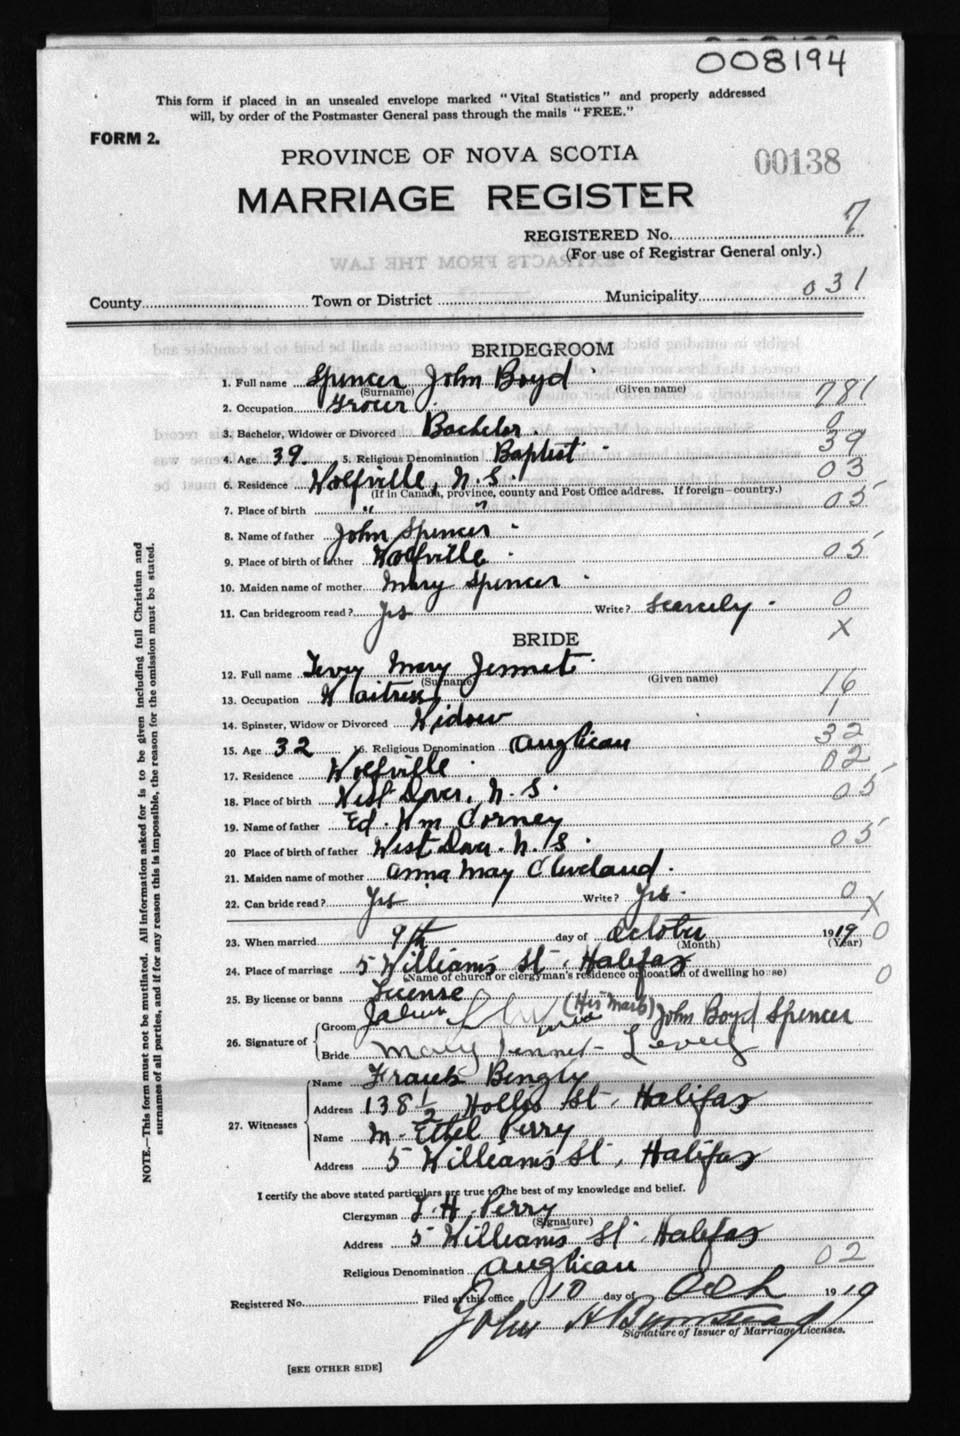 008194
This form if placed in an unsealed envelope marked "Vital Statistics" and properly addressed
will, by order of the Postmaster General pass through the mails "FREE."
FORM 2.
PROVINCE OF NOVA SCOTIA
00138
MARRIAGE REGISTER
REGISTERED No. 7
(For use of Registrar General only.)
County Town or District Municipality 031
BRIDEGROOM
1. Full name Spencer John Boyd
(Surname) (Given name)
2. Occupation 781
3. Bachelor, Widower or Divorced Bachelor 0
4. Age 39. 5. Religious Denomination Baptist 39
6. Residence Wolfville, N.S. 03
(If in Canada, province, county and Post Office address. If foreign—country.)
7. Place of birth " " 05
8. Name of father John Spencer
9. Place of birth of father Wolfville 05
10. Maiden name of mother Mary Spencer
11. Can bridegroom read? Yes Write? Scarcely 0
X
BRIDE
12. Full name Levy Mary Jennet
(Surname) (Given name)
13. Occupation Waitress 16
14. Spinster, Widow or Divorced Widow 1
15. Age 32 16. Religious Denomination Anglican 32
17. Residence Wolfville 02
18. Place of birth West Dover, N.S. 05
19. Name of father Ed. Wm Corney
20 Place of birth of father West Dover. N.S. 05
21. Maiden name of mother Anna May Cleveland
22. Can bride read? Yes Write? Yes 0
X
23. When married 9th day of October 1919 0
(Month) (Year)
24. Place of marriage 5 Williams St. Halifax
(Name of church or clergyman's residence or location of dwelling house) 0
25. By license or banns License
26. Signature of Groom (His Mark) John Boyd Spencer
Bride Mary Jennet Levey
27. Witnesses
Name Frank
Address 138 1/2 Hollis St. Halifax
Name M. Ethel Perry
Address 5 Williams St, Halifax
I certify the above stated particulars are true to the best of my knowledge and belief.
Clergyman Perry
(Signature)
Address 5 Williams St. Halifax
Religious Denomination Anglican 02
Registered No. Filed at this office 10 day of Oct 1919
John H
Signature of Issuer of Marriage Licenses.
[SEE OTHER SIDE]
NOTE.—This form must not be mutilated. All information asked for is to be given including full Christian and
surnames of all parties, and if for any reason this is impossible, the reason for the omission must be stated.
EXTRACTS FROM THE LAW